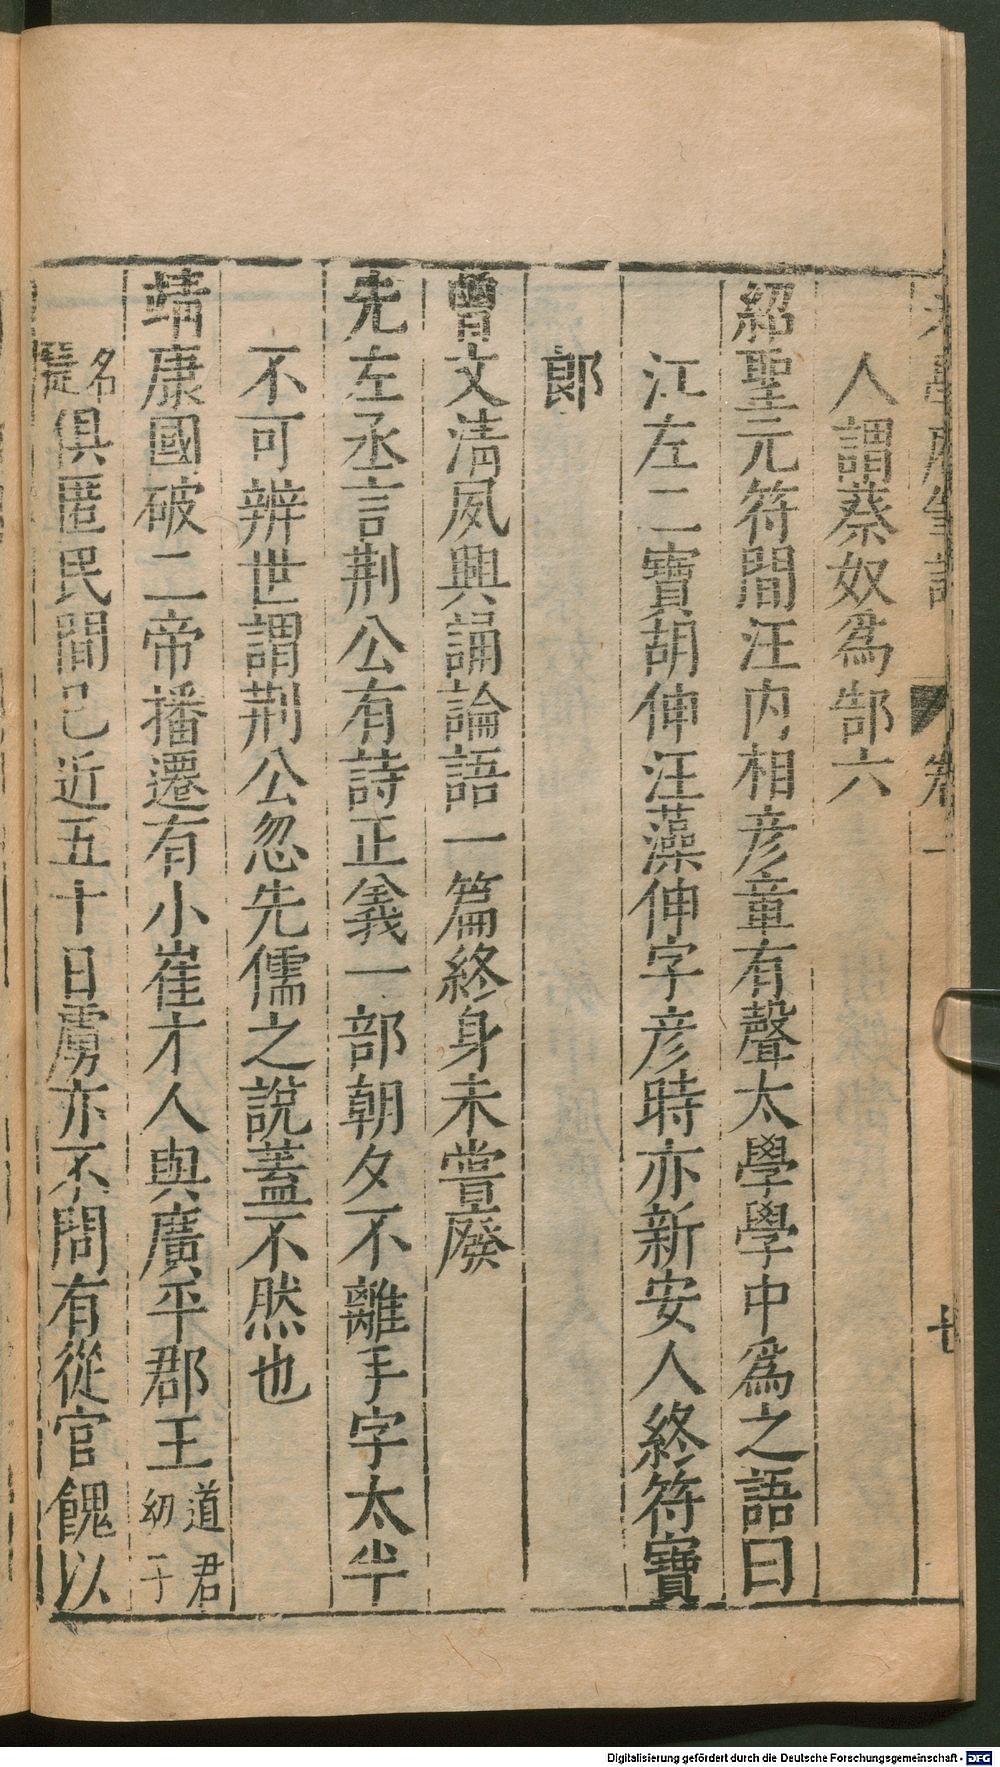 老學庵筆記 卷一 七
人謂蔡奴爲郜六
紹聖元符間汪内相彦章有聲太學學中爲之語曰
江左二寶胡伸汪藻伸字彦時亦新安人終符寶
郎
曾文淸夙興誦論語一篇終身未嘗廢
先左丞言荆公有詩正義一部朝夕不離手字太半
不可辨世謂荆公忽先儒之說蓋不然也
靖康國破二帝播遷有小崔才人與廣平郡王道君幼子
名㮛俱匿民間已近五十日虜亦不問有從官餽以
Digitalisierung gefördert durch die Deutsche Forschungsgemeinschaft - DFG